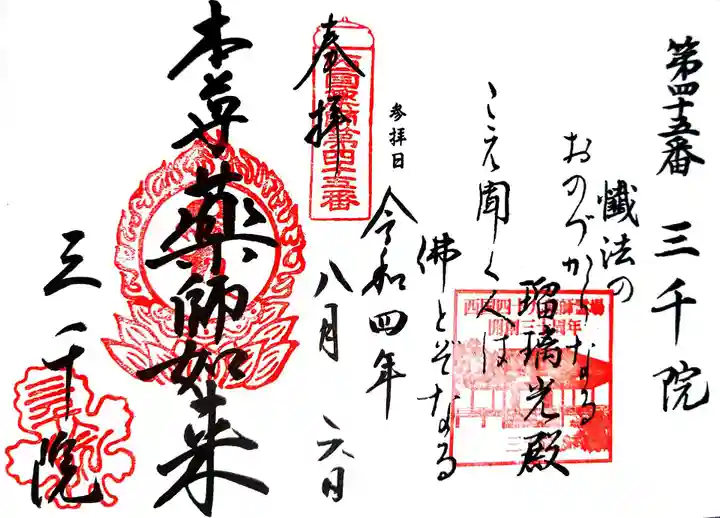 第四十五番 三千院
懺法の
おのづからなる
瑠璃光殿
こえ聞く人は
佛とぞなる
参拝日
令和四年
八月 六日
奉拝
西國薬師第四十五番
本尊 薬師如来
三千院
西国四十九薬師霊場
開創三十周年
三